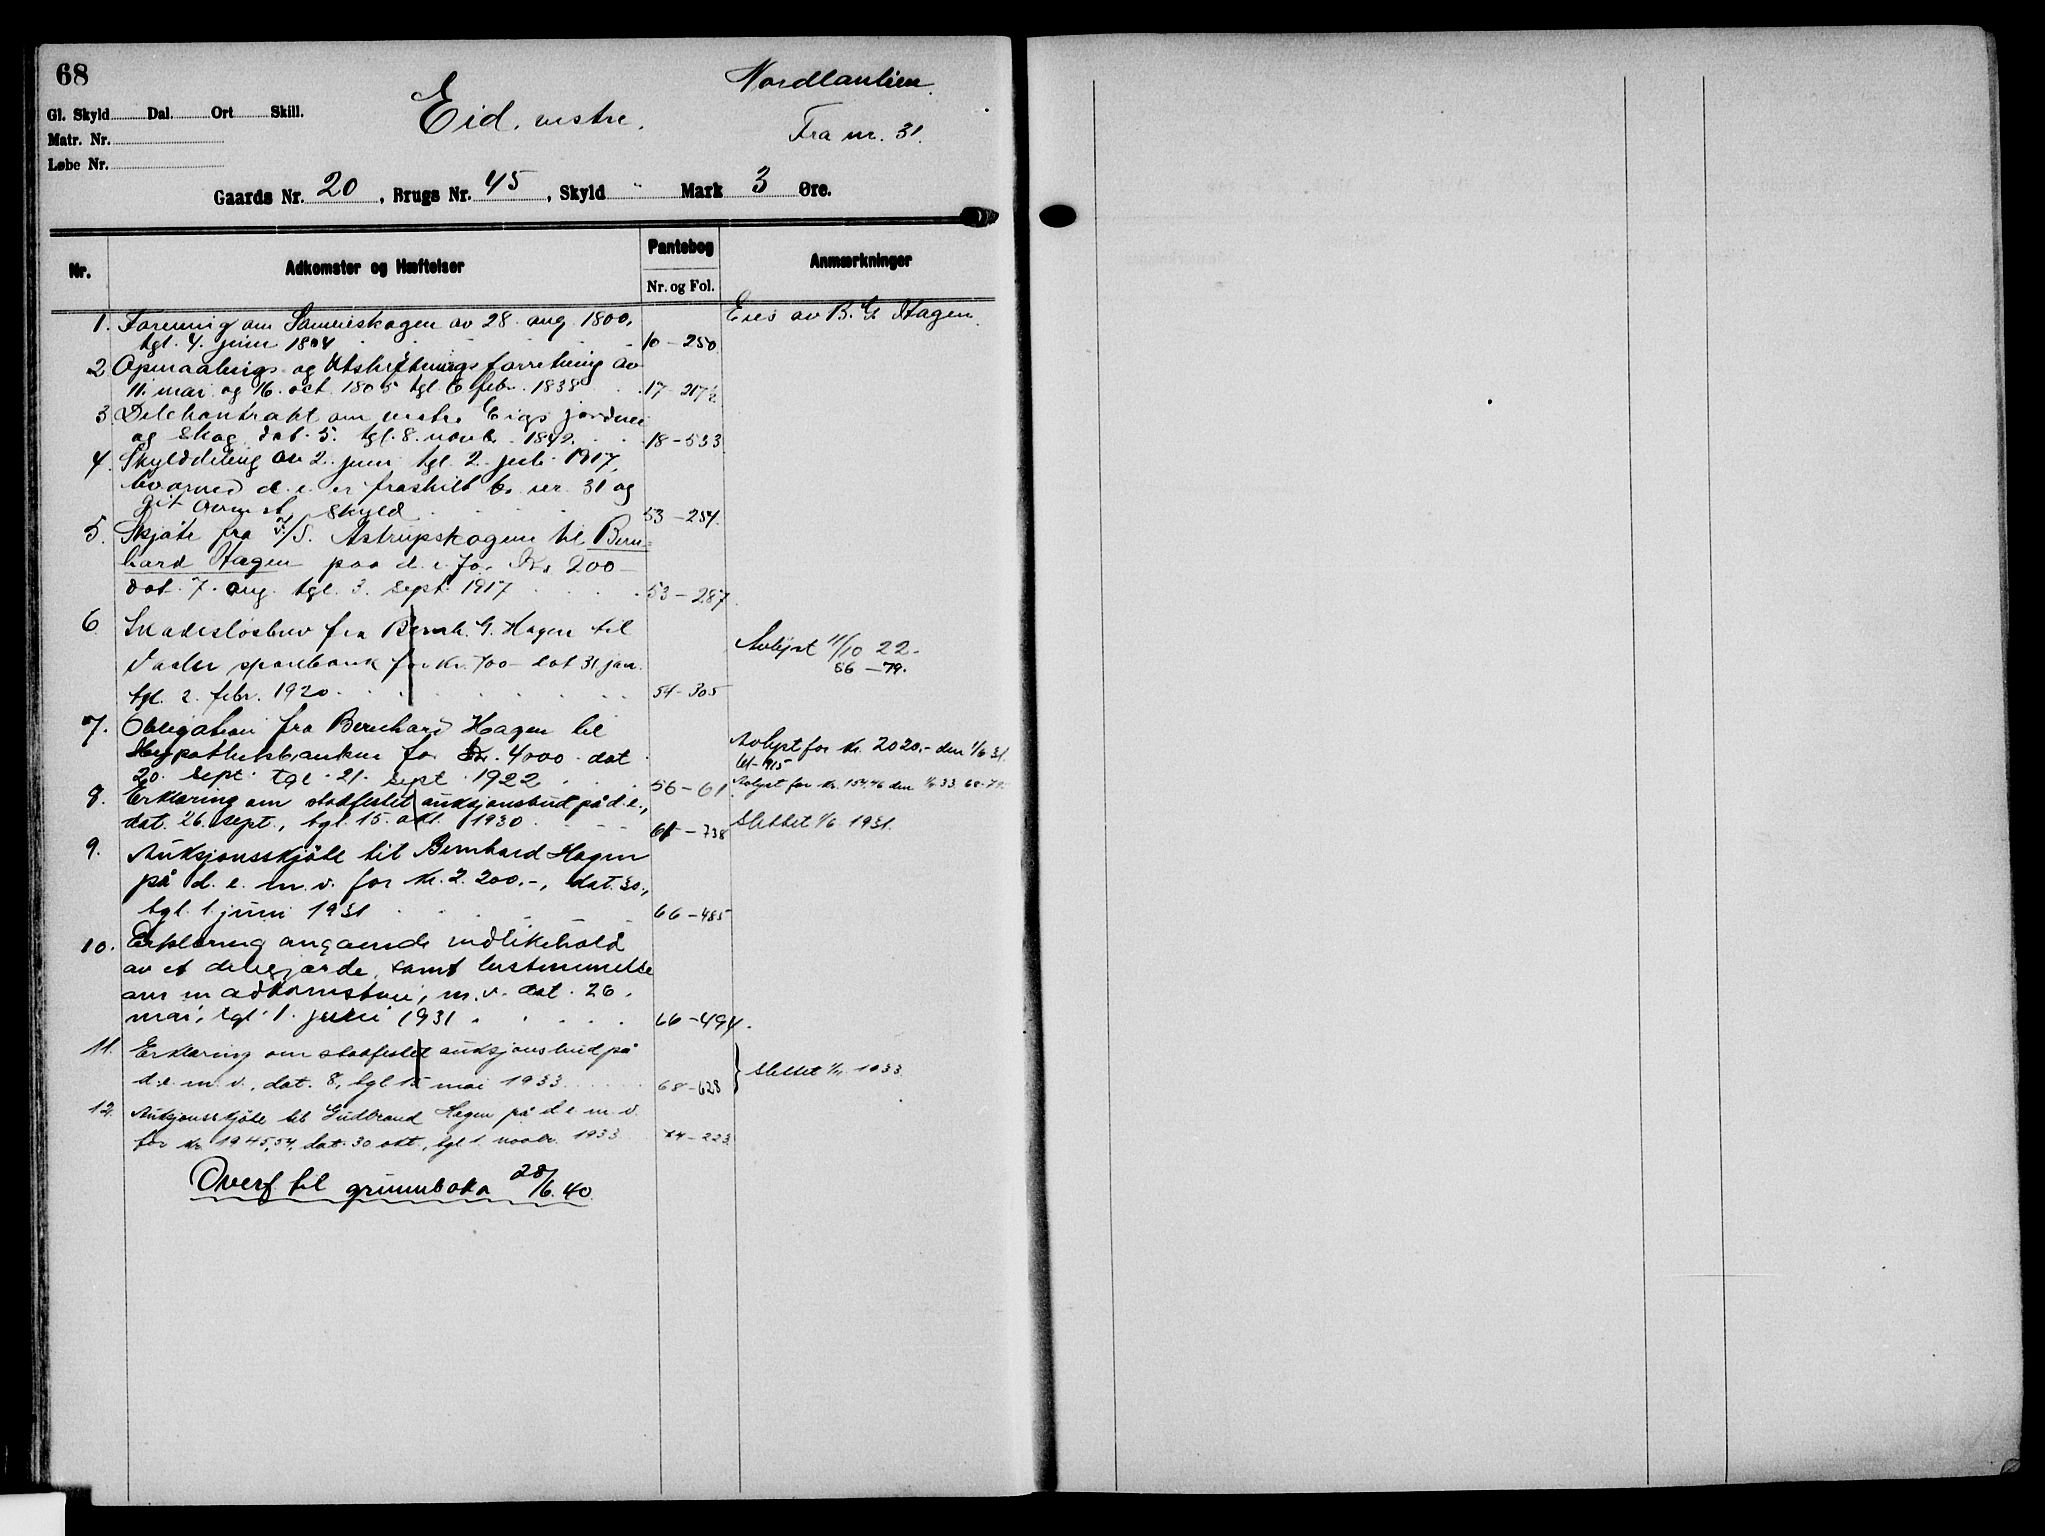 68
Gl. Skyld Dal. Ort Skill.
Matr. Nr.
Løbe Nr.
Eid, vestre.
Fra nr. 31.
Gaards Nr. 20, Brugs Nr. 45, Skyld " Mark 3 Øre.
Nr. Adkomster og Hæftelser Pantebog Nr. og Fol. Anmærkninger
1. Forening om Sameieskogen av 28. aug. 1800, Eies av B. G. Hagen.
tgl. 4. juni 1804 10 - 250
2 Opmaalings og Utskiftningsforretning av
11. mai og 16. oct. 1805 tgl. 6 febr. 1838 17 - 217½
3 Delekontrakt om vestre Eids jordvei
og skog, dat. 5. tgl. 8. novbr. 1842. 18 - 533
4. Skylddeling av 2. juni tgl. 2. juli 1917,
hvorved d. e. er fraskilt br. nr. 31 og
git ovenst. skyld 53 - 254.
5. Skjøte fra I/S. Astrupskogene til Bern=
hard Hagen paa d. e. for Kr. 200 -
dat. 7. aug. tgl. 3. sept. 1917 53 - 287.
6. Skadesløsbrev fra Bernh. G. Hagen til Avlyst 11/10 22.
Vaaler sparebank for kr. 700 - dat 31 jan. 56 - 79.
tgl. 2. febr. 1920. 54 - 305
7. Obligation fra Bernhard Hagen til
Hypothekbanken for Kr. 4000 dat. Avlyst for kr. 2020.- den 1/6 31.
20. sept. tgl. 21. sept. 1922 56 - 61 Avlyst for kr. 154,46 den
8. Erklæring om stadfestet auksjonsbud på d. e.,
dat. 26. sept., tgl. 15. okt. 1930. 65 - 738 Slettet 1/6 1931.
9. Auksjonsskjøte til Bernhard Hagen
på d. e. m. v. for kr. 2.200.-, dat. 30.,
tgl. 1. juni 1931 66 - 485
10. Erklæring angaaende vedlikehold
av et delegjærde, samt bestemmelse
om m. v. dat. 26.
mai, tgl. 1. juni 1931 66 - 494.
11. Erklæring om stadfestet auksjonsbud på
d. e. m. v., dat. 8., tgl 15 mai 1933 68 - 628 } Slettet 1/11 1933.
12. Auksjonsskjøte til Gudbrand Hagen på d. e. m. v.
for kr. 1945,54, dat. 30 okt., tgl. 1. novbr. 1933 - 223
Overf. til grunnboka 28/6.40.